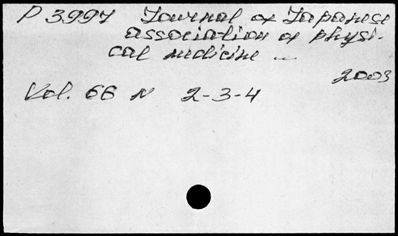 P 3997 Journal of Japanese
association of physi-
cal medicine ...
2003
Vol. 66 N 2-3-4